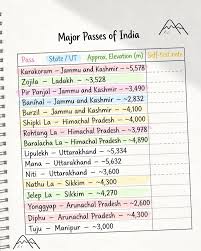 Major Passes of India
Pass State / UT Approx. Elevation (m) Self-test note
Karakoram – Jammu and Kashmir – ~5,578
Zojila – Ladakh – ~3,528
Pir Panjal – Jammu and Kashmir – ~3,490
Banihal – Jammu and Kashmir – ~2,832
Burzil – Jammu and Kashmir – ~4,100
Shipki La – Himachal Pradesh – ~4,300
Rohtang La – Himachal Pradesh – ~3,978
Baralacha La – Himachal Pradesh – ~4,890
Lipulekh – Uttarakhand – ~5,334
Mana – Uttarakhand – ~5,632
Niti – Uttarakhand – ~3,600
Nathu La – Sikkim – ~4,300
Jelep La – Sikkim – ~4,270
Yonggyap – Arunachal Pradesh – ~2,600
Diphu – Arunachal Pradesh – ~4,300
Tuju – Manipur – ~3,000